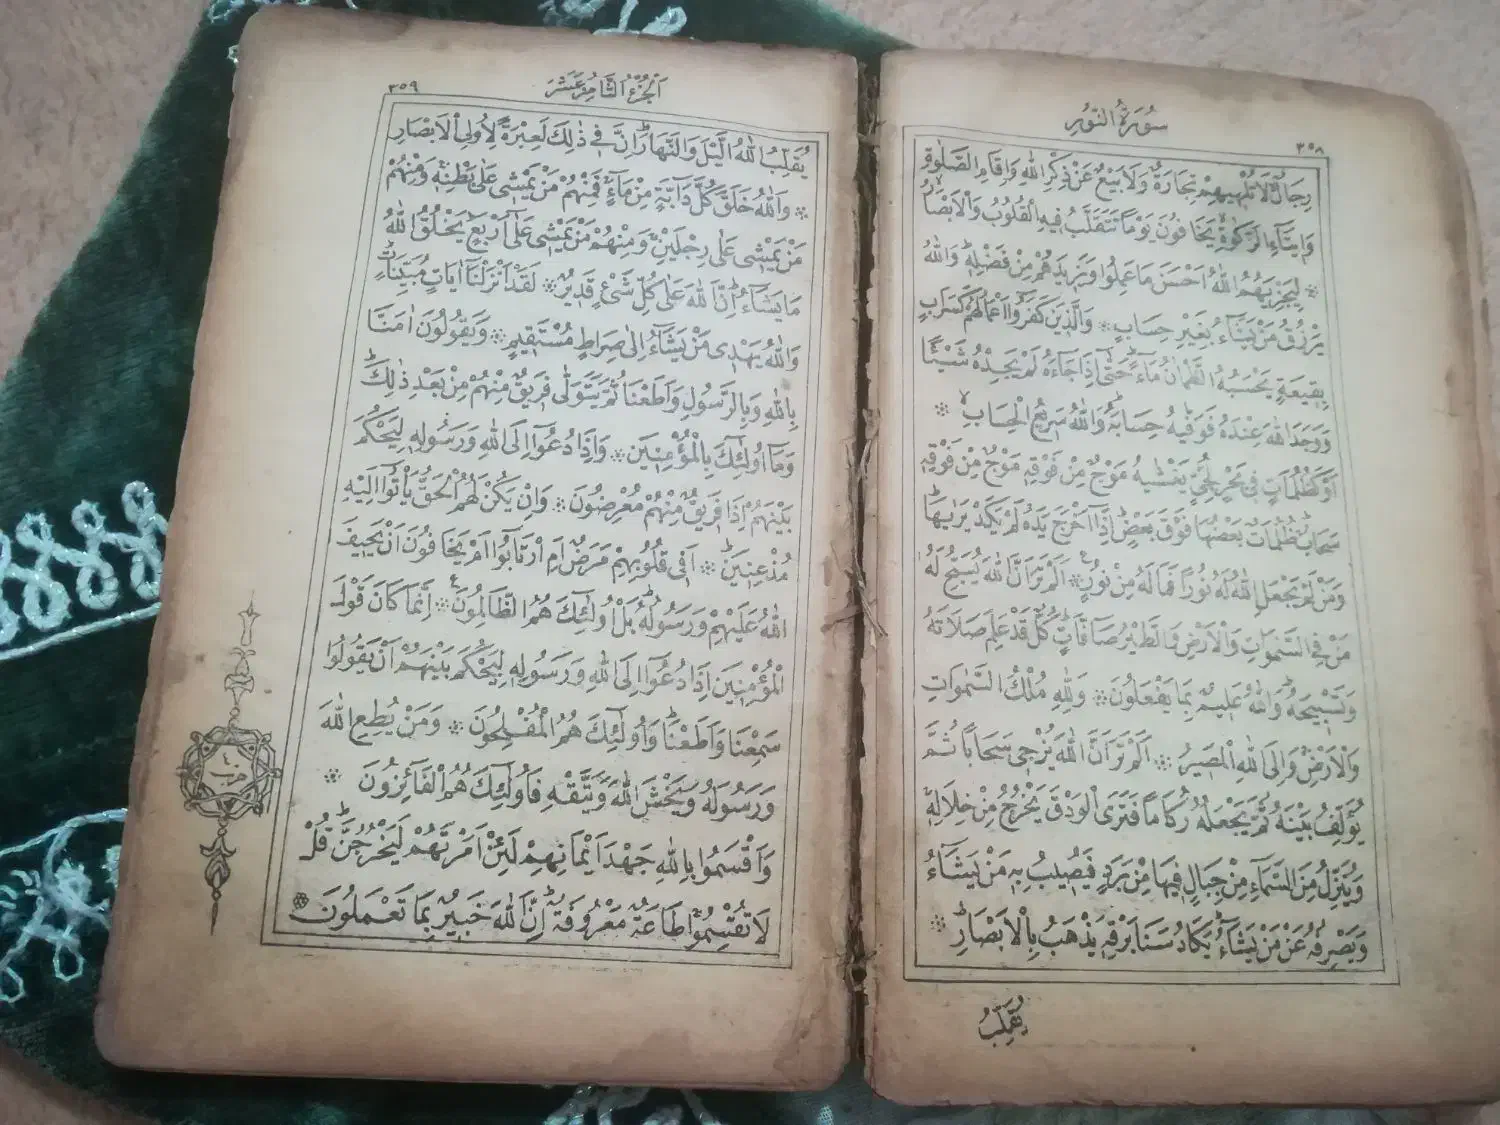 سُورَةُ النُّورِ
٣٥٨
رِجَالٌ لَا تُلْهِيهِمْ تِجَارَةٌ وَلَا بَيْعٌ عَنْ ذِكْرِ اللهِ وَاِقَامِ الصَّلٰوةِ
وَاِيتَآءِ الزَّكٰوةِ يَخَافُونَ يَوْمًا تَتَقَلَّبُ فِيهِ الْقُلُوبُ وَالْاَبْصَارُ
۞ لِيَجْزِيَهُمُ اللهُ اَحْسَنَ مَا عَمِلُوا وَيَزِيدَهُمْ مِنْ فَضْلِهِ وَاللهُ
يَرْزُقُ مَنْ يَشَآءُ بِغَيْرِ حِسَابٍ ۞ وَالَّذِينَ كَفَرُوا اَعْمَالُهُمْ كَسَرَابٍ
بِقِيعَةٍ يَحْسَبُهُ الظَّمْاٰنُ مَآءً حَتّٰى اِذَا جَآءَهُ لَمْ يَجِدْهُ شَيْئًا
وَوَجَدَ اللهَ عِنْدَهُ فَوَفّٰيهُ حِسَابَهُ وَاللهُ سَرِيعُ الْحِسَابِ ۞
اَوْ كَظُلُمَاتٍ فِى بَحْرٍ لُجِّىٍّ يَغْشٰيهُ مَوْجٌ مِنْ فَوْقِهِ مَوْجٌ مِنْ فَوْقِهِ
سَحَابٌ ظُلُمَاتٌ بَعْضُهَا فَوْقَ بَعْضٍ اِذَآ اَخْرَجَ يَدَهُ لَمْ يَكَدْ يَرٰيهَا
وَمَنْ لَمْ يَجْعَلِ اللهُ لَهُ نُورًا فَمَا لَهُ مِنْ نُورٍ ۞ اَلَمْ تَرَ اَنَّ اللهَ يُسَبِّحُ لَهُ
مَنْ فِى السَّمٰوَاتِ وَالْاَرْضِ وَالطَّيْرُ صَآفَّاتٍ كُلٌّ قَدْ عَلِمَ صَلَاتَهُ
وَتَسْبِيحَهُ وَاللهُ عَلِيمٌ بِمَا يَفْعَلُونَ ۞ وَلِلّٰهِ مُلْكُ السَّمٰوَاتِ
وَالْاَرْضِ وَاِلَى اللهِ الْمَصِيرُ ۞ اَلَمْ تَرَ اَنَّ اللهَ يُزْجِى سَحَابًا ثُمَّ
يُؤَلِّفُ بَيْنَهُ ثُمَّ يَجْعَلُهُ رُكَامًا فَتَرَى الْوَدْقَ يَخْرُجُ مِنْ خِلَالِهِ
وَيُنَزِّلُ مِنَ السَّمَآءِ مِنْ جِبَالٍ فِيهَا مِنْ بَرَدٍ فَيُصِيبُ بِهِ مَنْ يَشَآءُ
وَيَصْرِفُهُ عَنْ مَنْ يَشَآءُ يَكَادُ سَنَا بَرْقِهِ يَذْهَبُ بِالْاَبْصَارِ ۞
يُقَلِّبُ
اَلْجُزْءُ الثَّامِنَ عَشَرَ
٣٥٩
يُقَلِّبُ اللهُ الَّيْلَ وَالنَّهَارَ اِنَّ فِى ذٰلِكَ لَعِبْرَةً لِاُولِى الْاَبْصَارِ
۞ وَاللهُ خَلَقَ كُلَّ دَآبَّةٍ مِنْ مَآءٍ فَمِنْهُمْ مَنْ يَمْشِى عَلٰى بَطْنِهِ وَمِنْهُمْ
مَنْ يَمْشِى عَلٰى رِجْلَيْنِ وَمِنْهُمْ مَنْ يَمْشِى عَلٰٓى اَرْبَعٍ يَخْلُقُ اللهُ
مَا يَشَآءُ اِنَّ اللهَ عَلٰى كُلِّ شَىْءٍ قَدِيرٌ ۞ لَقَدْ اَنْزَلْنَآ اٰيَاتٍ مُبَيِّنَاتٍ
وَاللهُ يَهْدِى مَنْ يَشَآءُ اِلٰى صِرَاطٍ مُسْتَقِيمٍ ۞ وَيَقُولُونَ اٰمَنَّا
بِاللهِ وَبِالرَّسُولِ وَاَطَعْنَا ثُمَّ يَتَوَلّٰى فَرِيقٌ مِنْهُمْ مِنْ بَعْدِ ذٰلِكَ
وَمَآ اُولٰٓئِكَ بِالْمُؤْمِنِينَ ۞ وَاِذَا دُعُوٓا اِلَى اللهِ وَرَسُولِهِ لِيَحْكُمَ
بَيْنَهُمْ اِذَا فَرِيقٌ مِنْهُمْ مُعْرِضُونَ ۞ وَاِنْ يَكُنْ لَهُمُ الْحَقُّ يَأْتُوٓا اِلَيْهِ
مُذْعِنِينَ ۞ اَفِى قُلُوبِهِمْ مَرَضٌ اَمِ ارْتَابُوٓا اَمْ يَخَافُونَ اَنْ يَحِيفَ
اللهُ عَلَيْهِمْ وَرَسُولُهُ بَلْ اُولٰٓئِكَ هُمُ الظَّالِمُونَ ۞ اِنَّمَا كَانَ قَوْلَ
الْمُؤْمِنِينَ اِذَا دُعُوٓا اِلَى اللهِ وَرَسُولِهِ لِيَحْكُمَ بَيْنَهُمْ اَنْ يَقُولُوا
سَمِعْنَا وَاَطَعْنَا وَاُولٰٓئِكَ هُمُ الْمُفْلِحُونَ ۞ وَمَنْ يُطِعِ اللهَ
وَرَسُولَهُ وَيَخْشَ اللهَ وَيَتَّقْهِ فَاُولٰٓئِكَ هُمُ الْفَآئِزُونَ ۞
وَاَقْسَمُوا بِاللهِ جَهْدَ اَيْمَانِهِمْ لَئِنْ اَمَرْتَهُمْ لَيَخْرُجُنَّ قُلْ
لَا تُقْسِمُوا طَاعَةٌ مَعْرُوفَةٌ اِنَّ اللهَ خَبِيرٌ بِمَا تَعْمَلُونَ ۞
حزب